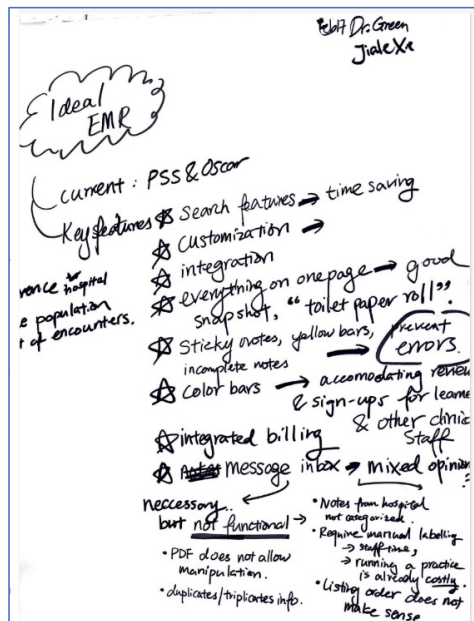 Feb17 Dr. Green
Jiale Xie
Ideal
EMR
current : PSS & Oscar
Key features ☆ Search features → time saving
☆ Customization →
☆ integration
☆ everything on one page → good
snapshot, "toilet paper roll".
hospital
population
of encounters.
☆ Sticky notes, yellow bars,
incomplete notes → prevent
errors.
☆ Color bars → accomodating review
& sign-ups for learne
& other clinic
staff
☆ integrated billing
☆ message inbox → mixed opinion
neccessary..
but not functional →
• PDF does not allow
manipulation.
• duplicates/triplicates info.
• Notes from hospital
not categorized.
• Require manual labelling
→ staff time,
→ running a practice
is already costly.
• Listing order does not
make sense